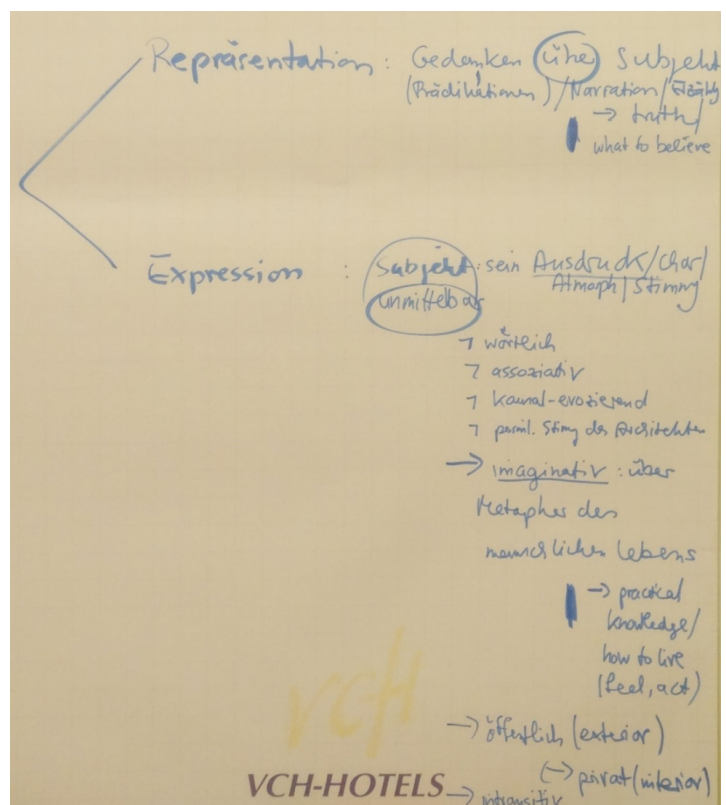 Repräsentation : Gedanken über Subjekt
(Prädikationen) / Narration /
→ truth /
what to believe
Expression : Subjekt : sein Ausdruck / Char /
unmittelbar Atmosph | Stimmg
¬ wörtlich
¬ assoziativ
¬ kausal-evozierend
¬ persönl. Stimg des Architekten
→ imaginativ : über
Metapher des
menschlichen Lebens
→ practical
knowledge /
how to live
(feel, act)
vch
→ öffentlich (exterior)
(→ privat (interior)
VCH-HOTELS → intransitiv